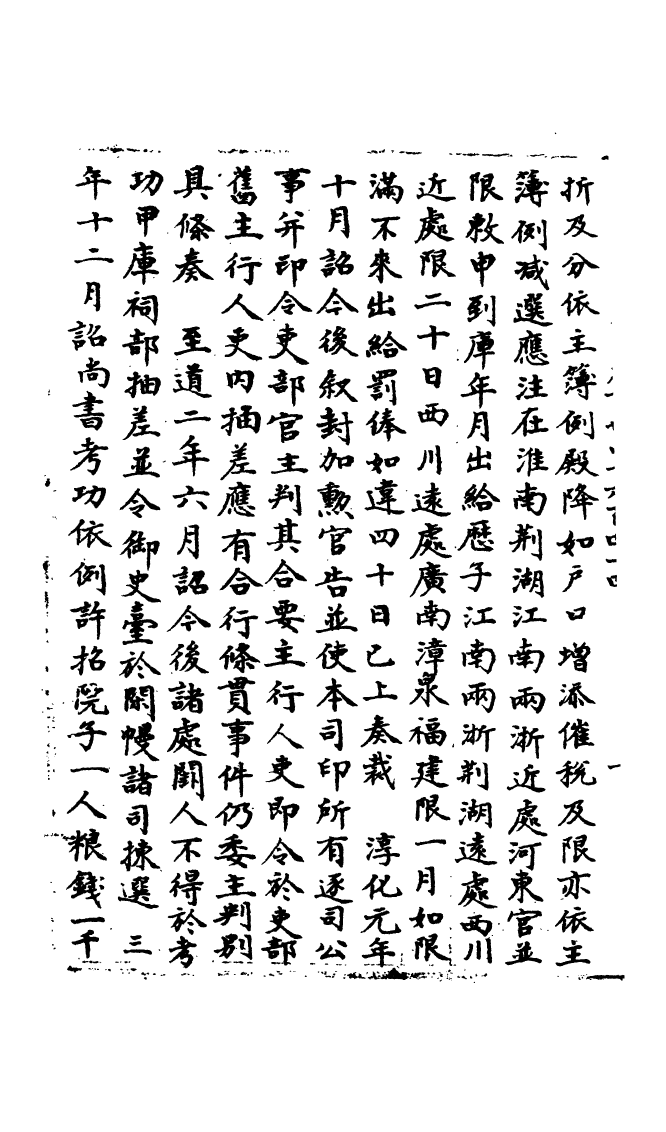 折及分依主簿例殿降如戶口增添催稅及限亦依主
簿例减選應注在淮南荆湖江南兩浙近處河東官並
限敕申到庫年月出給歷子江南兩浙荆湖遠處西川
近處限二十日西川遠處廣南漳泉福建限一月如限
滿不來出給罰俸如違四十日已上奏裁　淳化元年
十月詔今後叙封加勲官告並使本司印所有逐司公
事并印令吏部官主判其合要主行人吏即令於吏部
舊主行人吏内抽差應有合行條貫事件仍委主判別
具條奏　至道二年六月詔今後諸處闕人不得於考
功甲庫祠部抽差並令御史臺於閑慢諸司揀選　三
年十二月詔尚書考功依例許招院子一人粮錢一千